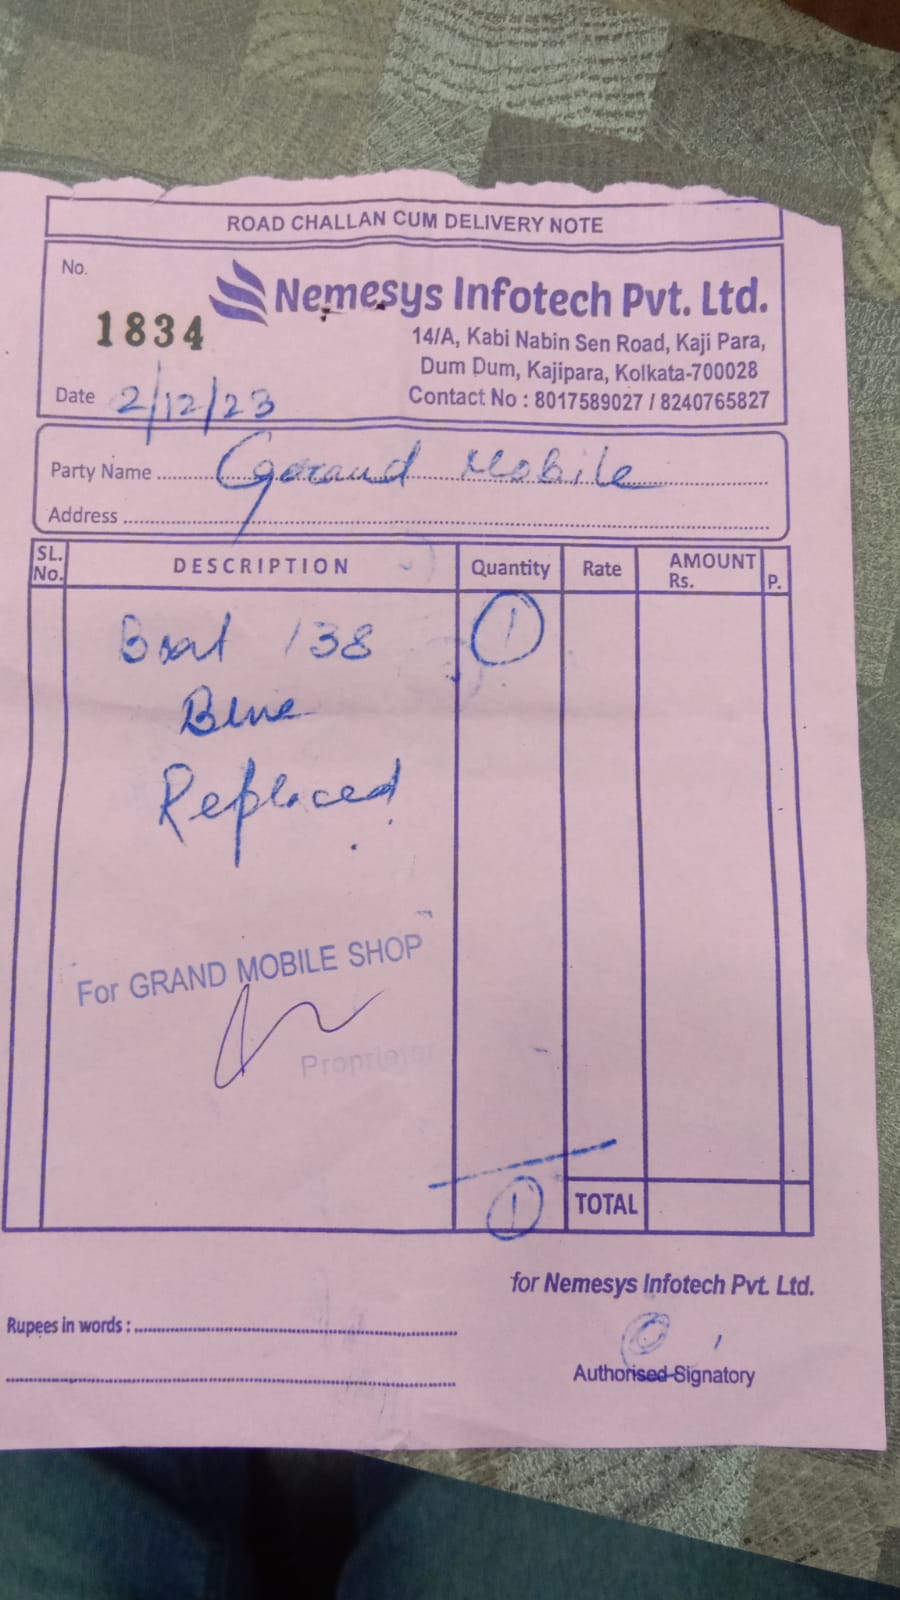 ROAD CHALLAN CUM DELIVERY NOTE
No.
1834
Nemesys Infotech Pvt. Ltd.
14/A, Kabi Nabin Sen Road, Kaji Para,
Dum Dum, Kajipara, Kolkata-700028
Contact No : 8017589027 / 8240765827
Date 2/12/23
Party Name Grand Mobile
Address
SL. No. DESCRIPTION Quantity Rate AMOUNT Rs. P.
Boat 138 1
Blue
Replaced
For GRAND MOBILE SHOP
Proprietor
1 TOTAL
for Nemesys Infotech Pvt. Ltd.
Rupees in words :
Authorised Signatory